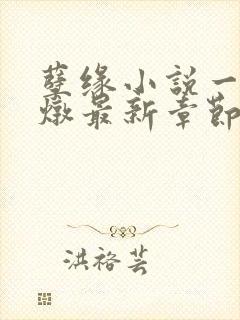 孽缘小说一
燉最新章節
洪裕芸